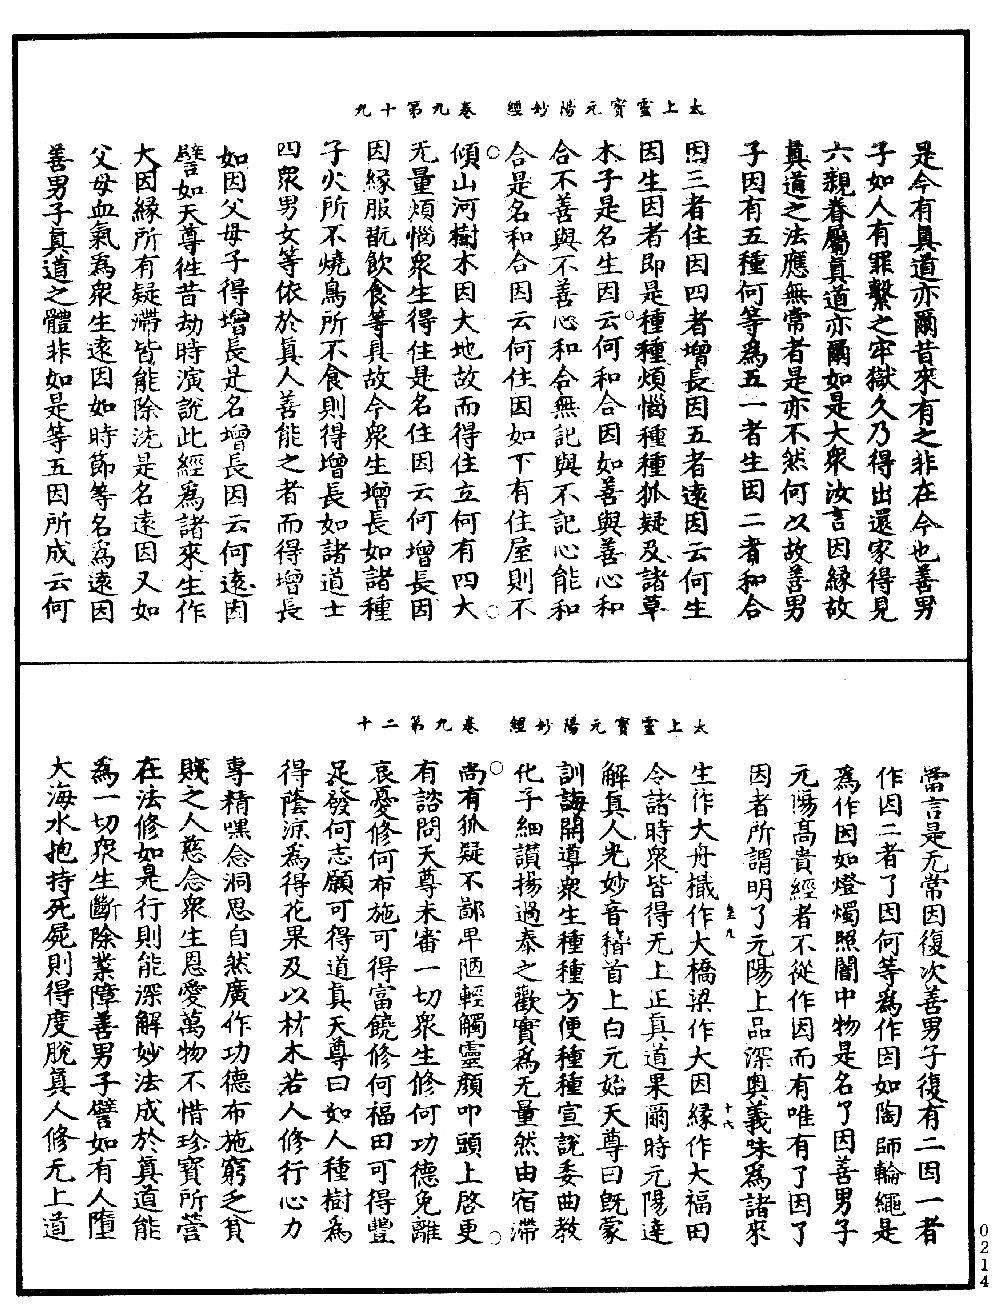 太上靈寶元陽妙經　卷九第十九
是今有真道亦爾昔來有之非在今也善男
子如人有罪繫之牢獄久乃得出還家得見
六親眷屬真道亦爾如是大衆汝言因緣故
真道之法應無常者是亦不然何以故善男
子因有五種何等爲五一者生因二者和合
因三者住因四者增長因五者遠因云何生
因生因者即是種種煩惱種種狐疑及諸草
木子是名生因云何和合因如善與善心和
合不善與不善心和合無記與不記心能和
合是名和合因云何住因如下有住屋則不
傾山河樹木因大地故而得住立何有四大
无量煩惱衆生得住是名住因云何增長因
因緣服翫飲食等具故令衆生增長如諸種
子火所不燒鳥所不食則得增長如諸道士
四衆男女等依於真人善能之者而得增長
如因父母子得增長是名增長因云何遠因
譬如天尊徃昔劫時演說此經爲諸來生作
大因緣所有疑滯皆能除洗是名遠因又如
父母血氣為衆生遠因如時節等名爲遠因
善男子真道之體非如是等五因所成云何
太上靈寶元陽妙經　卷九第二十
當言是无常因復次善男子復有二因一者
作因二者了因何等為作因如陶師輪繩是
為作因如燈燭照闇中物是名了因善男子
元陽高貴經者不從作因而有唯有了因了
因者所謂明了元陽上品深奧義味爲諸來
生作大舟檝作大橋梁作大因緣作大福田
令諸時衆皆得无上正真道果爾時元陽達
解真人光妙音稽首上白元始天尊曰既蒙
訓誨開導衆生種種方便種種宣說委曲教
化子細讃揚過泰之歡實爲无量然由宿滯
尚有狐疑不鄙卑陋輕觸靈顔叩頭上啓更
有諮問天尊未審一切衆生修何功德免離
哀憂修何布施可得富饒修何福田可得豐
足發何志願可得道真天尊曰如人種樹爲
得蔭涼爲得花果及以材木若人修行心力
專精嘿念洞思自然廣作功德布施窮乏貧
賤之人慈念衆生恩愛萬物不惜珍寶所營
在法修如是行則能深解妙法成於真道能
為一切衆生斷除業障善男子譬如有人墮
大海水抱持死屍則得度脫真人修无上道
0214